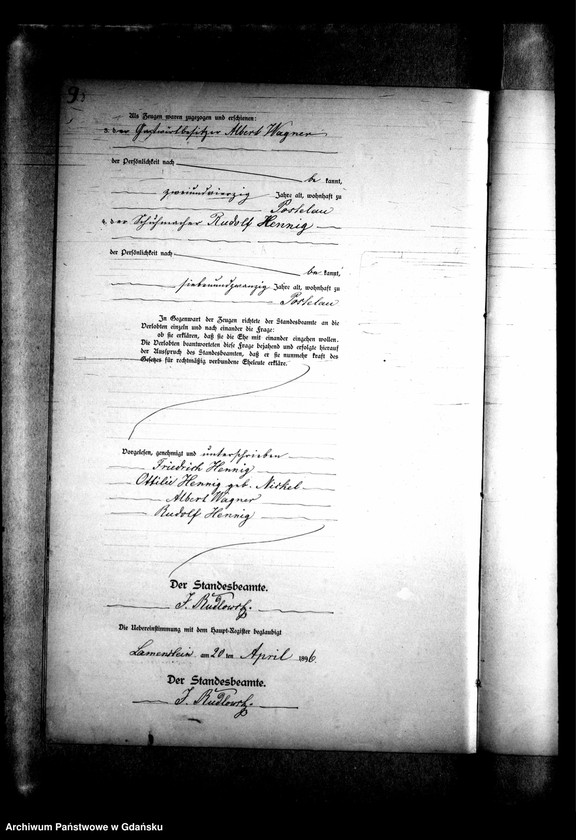 9.
Als Zeugen waren zugezogen und erschienen:
3. der Gastwirtbesitzer Albert Wagner
der Persönlichkeit nach
be kannt,
zweiundvierzig Jahre alt, wohnhaft zu
Postelau
4. der Schuhmacher Rudolf Hennig
der Persönlichkeit nach
be kannt,
siebenundzwanzig Jahre alt, wohnhaft zu
Postelau
In Gegenwart der Zeugen richtete der Standesbeamte an die
Verlobten einzeln und nach einander die Frage:
ob sie erklären, daß sie die Ehe mit einander eingehen wollen.
Die Verlobten beantworteten diese Frage bejahend und erfolgte hierauf
der Ausspruch des Standesbeamten, daß er sie nunmehr kraft des
Gesetzes für rechtmäßig verbundene Eheleute erkläre.
Vorgelesen, genehmigt und unterschrieben
Friedrich Hennig
Ottilie Hennig geb. Nickel
Albert Wagner
Rudolf Hennig
Der Standesbeamte.
Die Uebereinstimmung mit dem Haupt-Register beglaubigt
Lamenstein am 20 ten April 1896.
Der Standesbeamte.
Archiwum Państwowe w Gdańsku